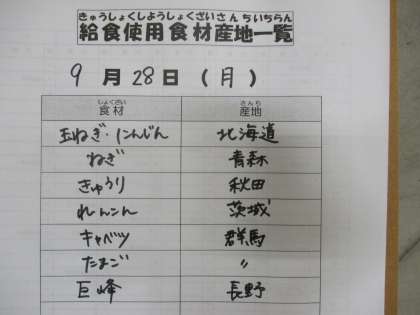 きゅうしょくしようしょくざいさんちいちらん
給食使用食材産地一覧
9月28日(月)
しょくざい さんち
食材 産地
玉ねぎ・にんじん 北海道
ねぎ 青森
きゅうり 秋田
れんこん 茨城
キャベツ 群馬
たまご 〃
巨峰 長野